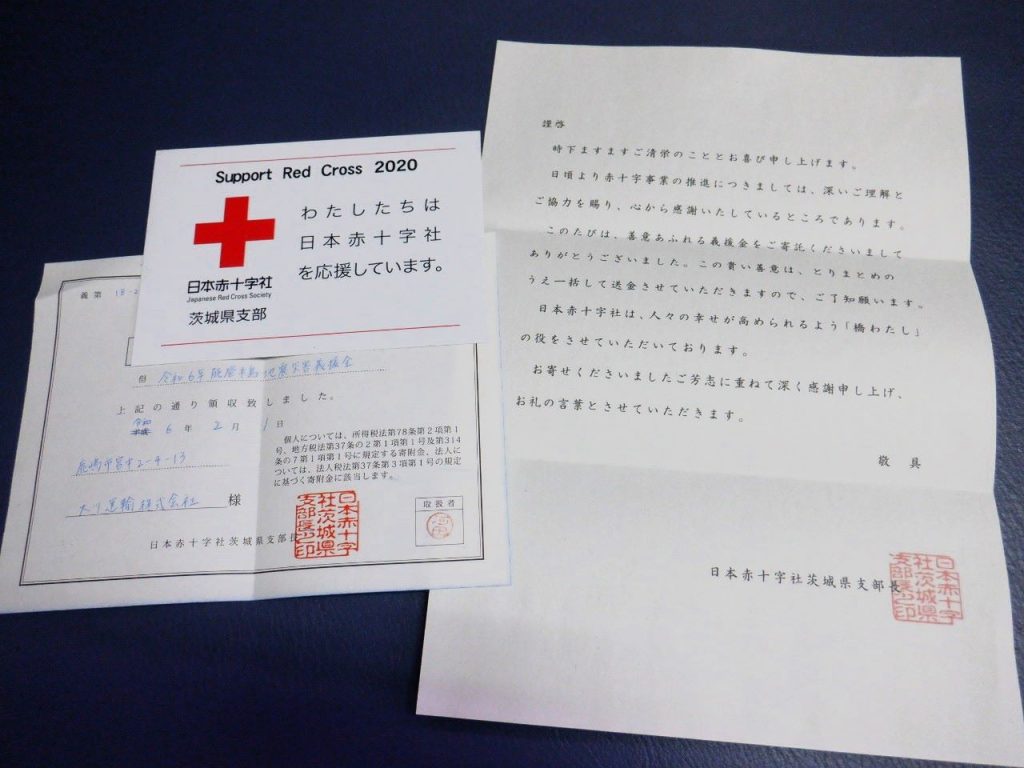 Support Red Cross 2020
わたしたちは
日本赤十字社
を応援しています。
日本赤十字社
Japanese Red Cross Society
茨城県支部
義第 18-2
但 令和6年能登半島地震災害義援金
上記の通り領収致しました。
令和 6年 2月 1日
個人については、所得税法第78条第2項第1
号、地方税法第37条の2第1項第1号及第314
条の7第1項第1号に規定する寄附金、法人に
ついては、法人税法第37条第3項第1号の規定
に基づく寄附金に該当します。
鹿嶋市宮中2-4-13
大リ運輸株式会社 様
取扱者
日本赤十字社茨城県支部長
日本赤十字
社茨城県
支部長之印
謹啓
時下ますますご清栄のこととお喜び申し上げます。
日頃より赤十字事業の推進につきましては、深いご理解と
ご協力を賜り、心から感謝いたしているところであります。
このたびは、善意あふれる義援金をご寄託くださいまして
ありがとうございました。この貴い善意は、とりまとめの
うえ一括して送金させていただきますので、ご了知願います。
日本赤十字社は、人々の幸せが高められるよう「橋わたし」
の役をさせていただいております。
お寄せくださいましたご芳志に重ねて深く感謝申し上げ、
お礼の言葉とさせていただきます。
敬具
日本赤十字社茨城県支部長
日本赤十字
社茨城県
支部長之印